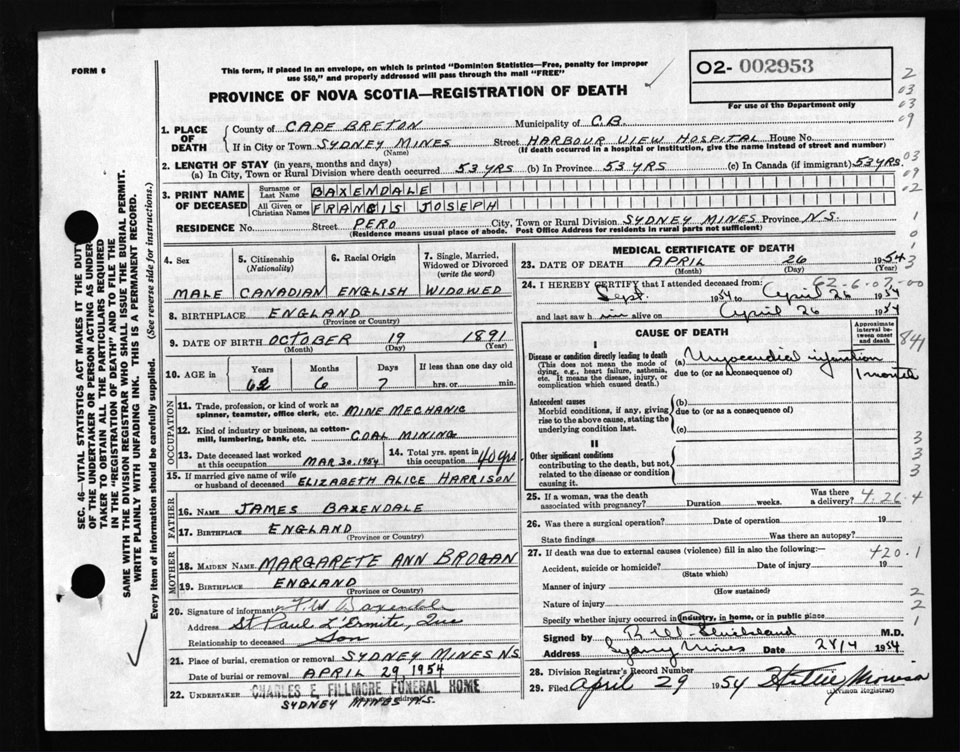 FORM 6
This form, if placed in an envelope, on which is printed "Dominion Statistics—Free, penalty for improper
use $50," and properly addressed will pass through the mail "FREE"
O2- 002953
For use of the Department only
PROVINCE OF NOVA SCOTIA—REGISTRATION OF DEATH
1. PLACE OF DEATH
County of CAPE BRETON Municipality of C.B.
If in City or Town SYDNEY MINES Street HARBOUR VIEW HOSPITAL House No.
(Name) (If death occurred in a hospital or institution, give the name instead of street and number)
2. LENGTH OF STAY (in years, months and days)
(a) In City, Town or Rural Division where death occurred 53 YRS (b) In Province 53 YRS (c) In Canada (if immigrant) 53 YRS.
3. PRINT NAME OF DECEASED
Surname or Last Name BAXENDALE
All Given or Christian Names FRANCIS JOSEPH
RESIDENCE No. Street PERO City, Town or Rural Division SYDNEY MINES Province N.S.
(Residence means usual place of abode. Post Office Address for residents in rural parts not sufficient)
4. Sex MALE
5. Citizenship (Nationality) CANADIAN
6. Racial Origin ENGLISH
7. Single, Married, Widowed or Divorced (write the word) WIDOWED
8. BIRTHPLACE ENGLAND
(Province or Country)
9. DATE OF BIRTH OCTOBER 19 1891
(Month) (Day) (Year)
10. AGE Years Months Days If less than one day old
62 6 7 hrs. or min.
OCCUPATION
11. Trade, profession, or kind of work as
spinner, teamster, office clerk, etc. MINE MECHANIC
12. Kind of industry or business, as cotton-
mill, lumbering, bank, etc. COAL MINING
13. Date deceased last worked at this occupation MAR 30, 1954
14. Total yrs. spent in this occupation 40 yrs
15. If married give name of wife
or husband of deceased ELIZABETH ALICE HARRISON
FATHER
16. NAME JAMES BAXENDALE
17. BIRTHPLACE ENGLAND
(Province or Country)
MOTHER
18. MAIDEN NAME MARGARETE ANN BROGAN
19. BIRTHPLACE ENGLAND
(Province or Country)
20. Signature of informant F. W. Baxendale
Address St Paul L'Ermite, Que
Relationship to deceased Son
21. Place of burial, cremation or removal SYDNEY MINES N.S.
Date of burial or removal APRIL 29, 1954
22. UNDERTAKER CHARLES E. FILLMORE FUNERAL HOME
SYDNEY MINES N.S.
MEDICAL CERTIFICATE OF DEATH
23. DATE OF DEATH APRIL 26 1954
(Month) (Day) (Year)
24. I HEREBY CERTIFY that I attended deceased from: 62-6-07-00
Sept. 1954 to April 26 1954
and last saw him alive on April 26 1954
CAUSE OF DEATH
Approximate interval between onset and death
I
Disease or condition directly leading to death
(This does not mean the mode of
dying, e.g., heart failure, asthenia,
etc. It means the disease, injury, or
complication which caused death.)
(a) Myocardial infarction
due to (or as a consequence of) 1 month
841
Antecedent causes
Morbid conditions, if any, giving
rise to the above cause, stating the
underlying condition last.
(b)
due to (or as a consequence of)
(c)
II
Other significant conditions
contributing to the death, but not
related to the disease or condition
causing it.
25. If a woman, was the death associated with pregnancy? Duration weeks. Was there a delivery? 4.26.4
26. Was there a surgical operation? Date of operation 19
State findings Was there an autopsy?
27. If death was due to external causes (violence) fill in also the following: 420.1
Accident, suicide or homicide? Date of injury 19
(State which)
Manner of injury
(How sustained)
Nature of injury
Specify whether injury occurred in industry, in home, or in public place
Signed by M.D.
Address Sydney Mines Date 28/4 1954
28. Division Registrar's Record Number
29. Filed April 29 1954
(Division Registrar)
SEC. 46—VITAL STATISTICS ACT MAKES IT THE DUTY
OF THE UNDERTAKER OR PERSON ACTING AS UNDER-
TAKER TO OBTAIN ALL THE PARTICULARS REQUIRED
IN THE "REGISTRATION OF DEATH" AND TO FILE THE
SAME WITH THE DIVISION REGISTRAR WHO SHALL ISSUE THE BURIAL PERMIT.
WRITE PLAINLY WITH UNFADING INK. THIS IS A PERMANENT RECORD.
Every item of information should be carefully supplied. (See reverse side for instructions.)
2
03
03
09
03
09
02
1
0
1
3
3
3
3
2
2
1